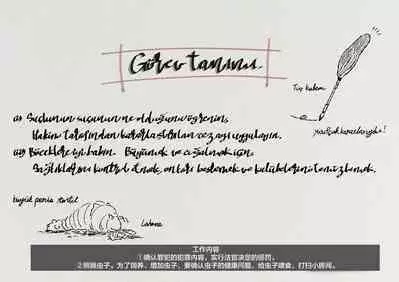 Görev tanımı.
Tüy kalem
(i) Suçlunun suçunun ne olduğunu öğrenin,
Hakim tarafından kararlaştırılan cezayı uygulayın.
(ii) Böceklere iyi bakın. Büyümek ve çoğalmak için,
Sağlıklarını kontrol etmek, onları beslemek ve kulübelerini temizlemek.
büyük tırtıl
工作内容
①确认罪犯的犯罪内容，实行法官决定的惩罚。
②照顾虫子。为了饲养、增加虫子，要确认虫子的健康问题、给虫子喂食、打扫小房间。